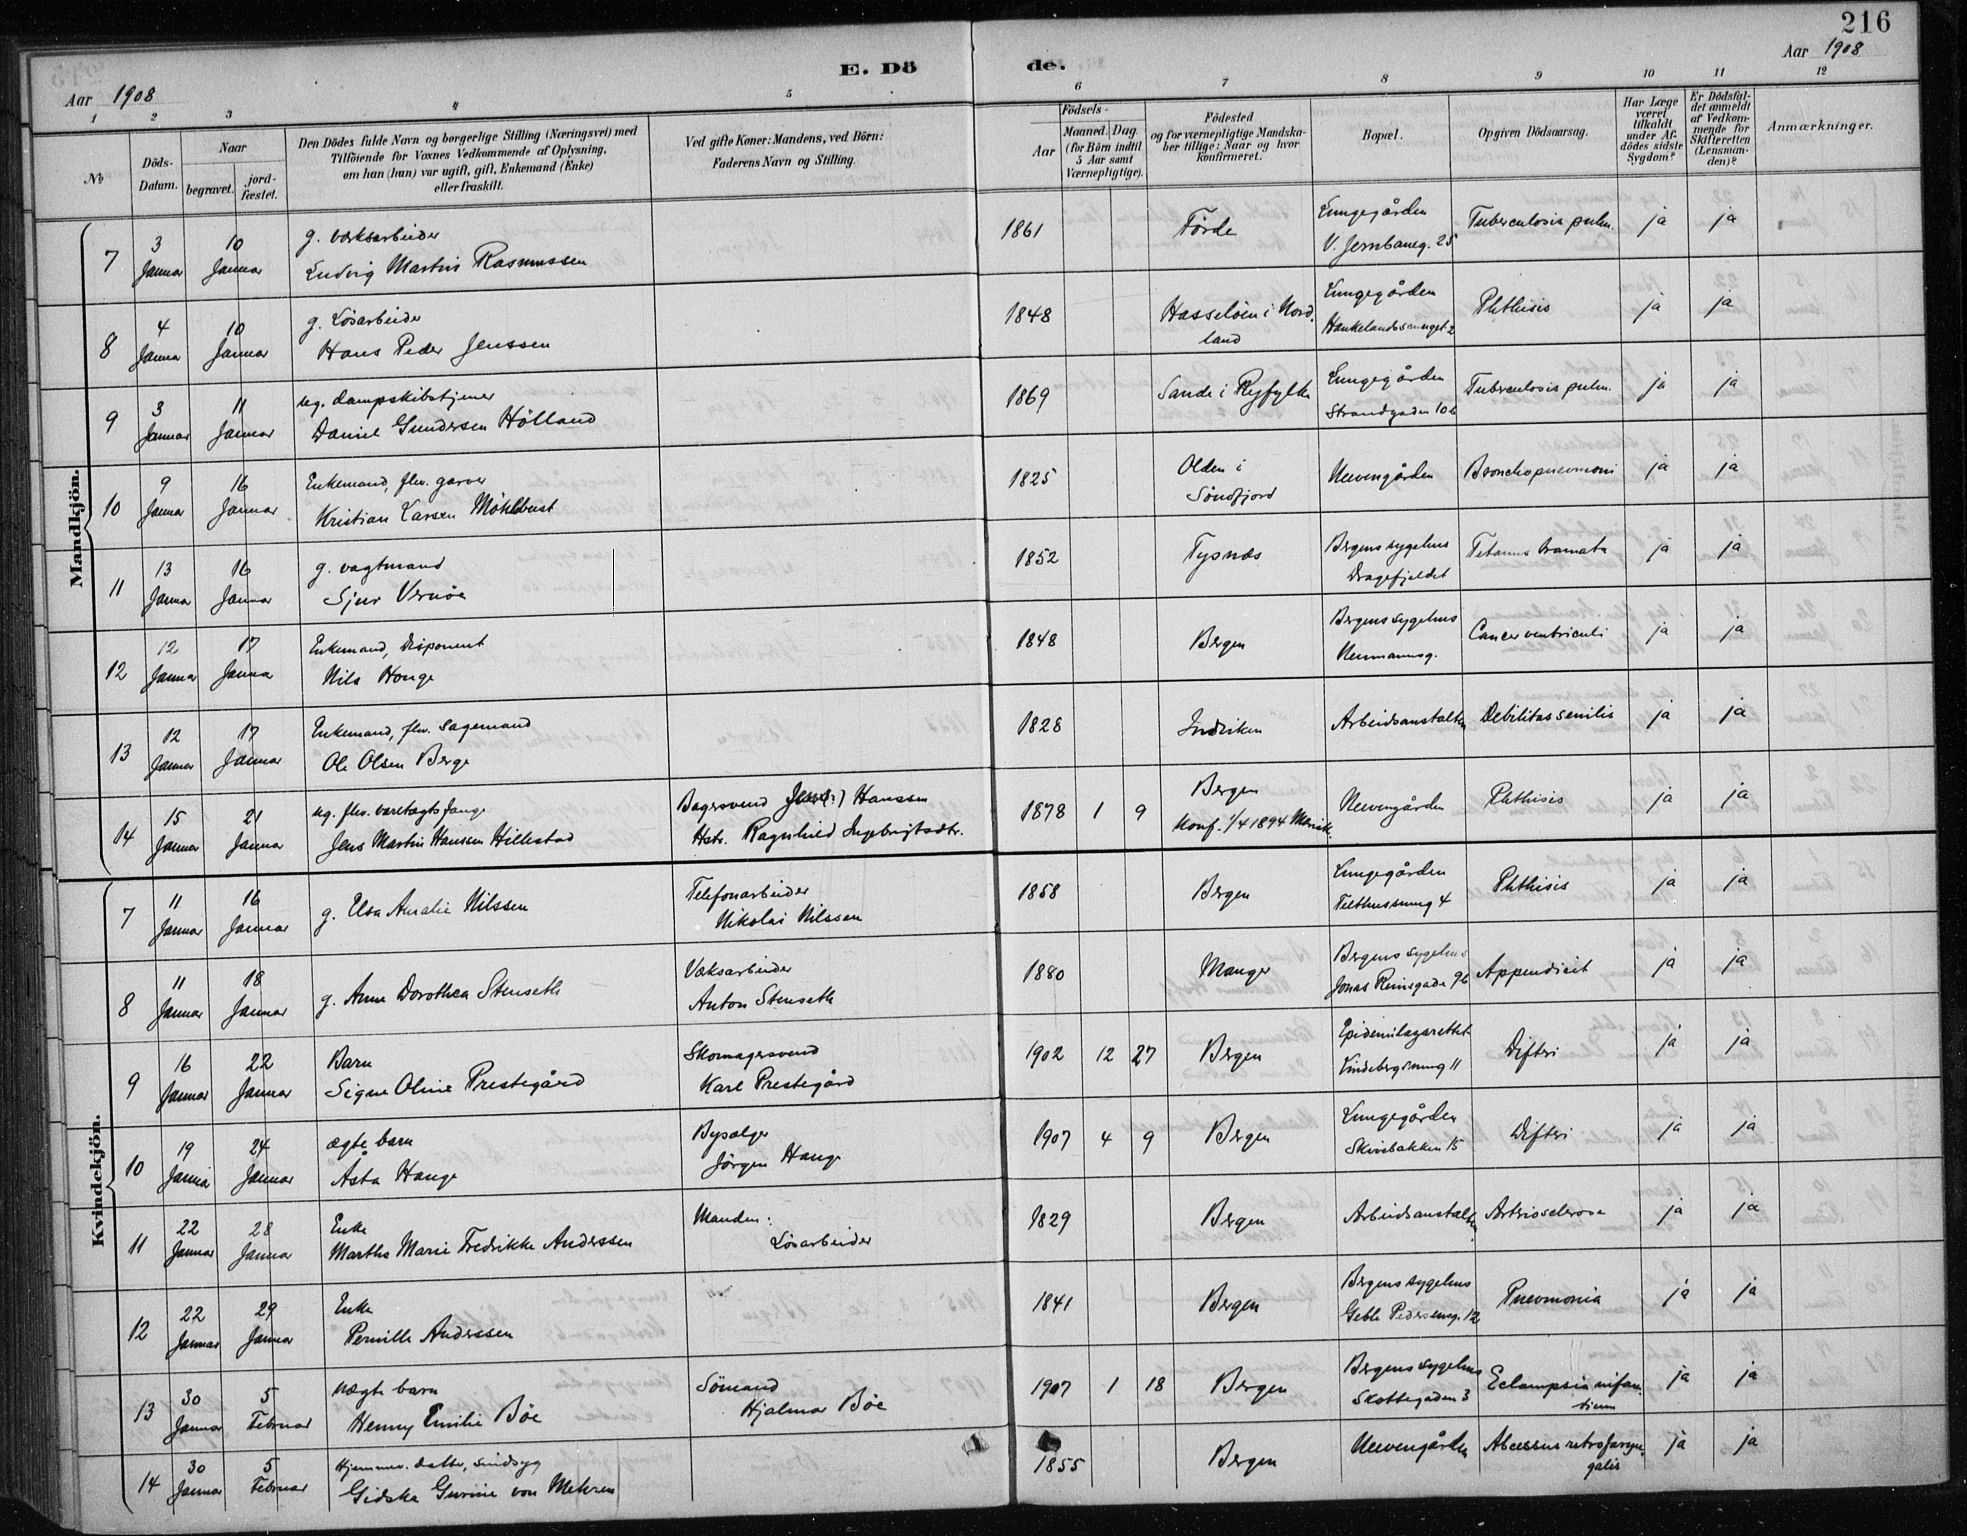 216
E. Dö de.
Aar 1908 Aar 1908
1 2 3 4 5 6 7 8 9 10 11 12
№
Döds-Datum.
Naar
begravet.
jord-fæstet.
Den Dödes fulde Navn og borgerlige Stilling (Næringsvei) med
Tilföiende for Voxnes Vedkommende af Oplysning,
om han (hun) var ugift, gift, Enkemand (Enke)
eller fraskilt.
Ved gifte Koner: Mandens, ved Börn:
Faderens Navn og Stilling.
Födsels-
Aar
Maaned. Dag.
(for Börn indtil
5 Aar samt
Værnepligtige).
Födested
og for værnepligtige Mandska-
ber tillige: Naar og hvor
konfirmeret.
Bopæl.
Opgiven Dödsaarsag.
Har Læge
været
tilkaldt
under Af-
dödes sidste
Sygdom?
Er Dödsfal-
det anmeldt
af Vedkom-
mende for
Skifteretten
(Lensman-
den)?
Anmærkninger.
Mandkjön.
7 3 Januar 10 Januar g. værksarbeider
Ludvig Martin Rasmussen 1861 Förde Lungegården
V. Jernbaneg. 25 Tuberculosis pulm. ja ja
8 4 Januar 10 Januar g. Løsarbeider
Hans Peder Jenssen 1848 Hasselöen i Nord-
land Lungegården
Haukelandssmuget 2 Phthisis ja ja
9 3 Januar 11 Januar ug. dampskibstjener
Daniel Gundersen Hölland 1869 Sande i Ryfylke Lungegården
Strandgaden 106 Tuberculosis pulm. ja ja
10 9 Januar 16 Januar Enkemand, fhv. garver
Kristian Larsen 1825 Olden i
Söndfjord Neevengården Bronchopneumoni ja ja
11 13 Januar 16 Januar g. vagtmand
Sjur Vernöe 1852 Tysnæs Bergens sygehus
Dragefjeldet Tetanus ja ja
12 12 Januar 17 Januar Enkemand, Disponent
Nils Houge 1848 Bergen Bergens sygehus
Neumannsg. Cancer ventriculi ja ja
13 12 Januar 17 Januar Enkemand, fhv. sagemand
Ole Olsen Berge 1828 Indviken Arbeidsanstalten Debilitas senilis ja ja
14 15 Januar 21 Januar ug. fhv. varetægtsfange
Jens Martin Hanssen Hillestad Bagersvend Hanssen
Hstr. Ragnhild Ingebrigtsdtr. 1878 1 9 Bergen
Konf. 1/4 1894 Neevengården Phthisis ja ja
Kvindekjön.
7 11 Januar 16 Januar g. Elsa Amalie Nilssen Telefonarbeider
Nikolai Nilssen 1858 Bergen Lungegården
Telthussmug 4 Phthisis ja ja
8 11 Januar 18 Januar g. Anne Dorothea Stenseth Væksarbeider
Anton Stenseth 1880 Manger Bergens sygehus
Jonas Reinsgade 9b Appendicit ja ja
9 16 Januar 22 Januar Barn
Signe Oline Prestegård Skomagersvend
Karl Prestegård 1902 12 27 Bergen Epidemilazarettet
Lindebergsmug 11 Difteri ja ja
10 19 Januar 24 Januar ægte barn
Åsta Hauge Bysælger
Jörgen Hauge 1907 4 9 Bergen Lungegården
Skivebakken 15 Difteri ja ja
11 22 Januar 28 Januar Enke
Martha Marie Fredrikke Anderssen Manden:
Løsarbeider 1829 Bergen Arbeidsanstalten Arteriosclerose ja ja
12 22 Januar 29 Januar Enke
Pernille Anderssen 1841 Bergen Bergens sygehus
Geble Pedersensg. 12 Pneumonia ja ja
13 30 Januar 5 Februar uægte barn
Henny Emilie Böe Sömand
Hjalmar Böe 1907 1 18 Bergen Bergens sygehus
Skottegaden 3 Eclampsia infan-
tium ja ja
14 30 Januar 5 Februar Hjemmev. datter, sindsyg
Gidska Gurine von Mehren 1855 Bergen Neevengården Abcessus retrofaryn-
galis ja ja